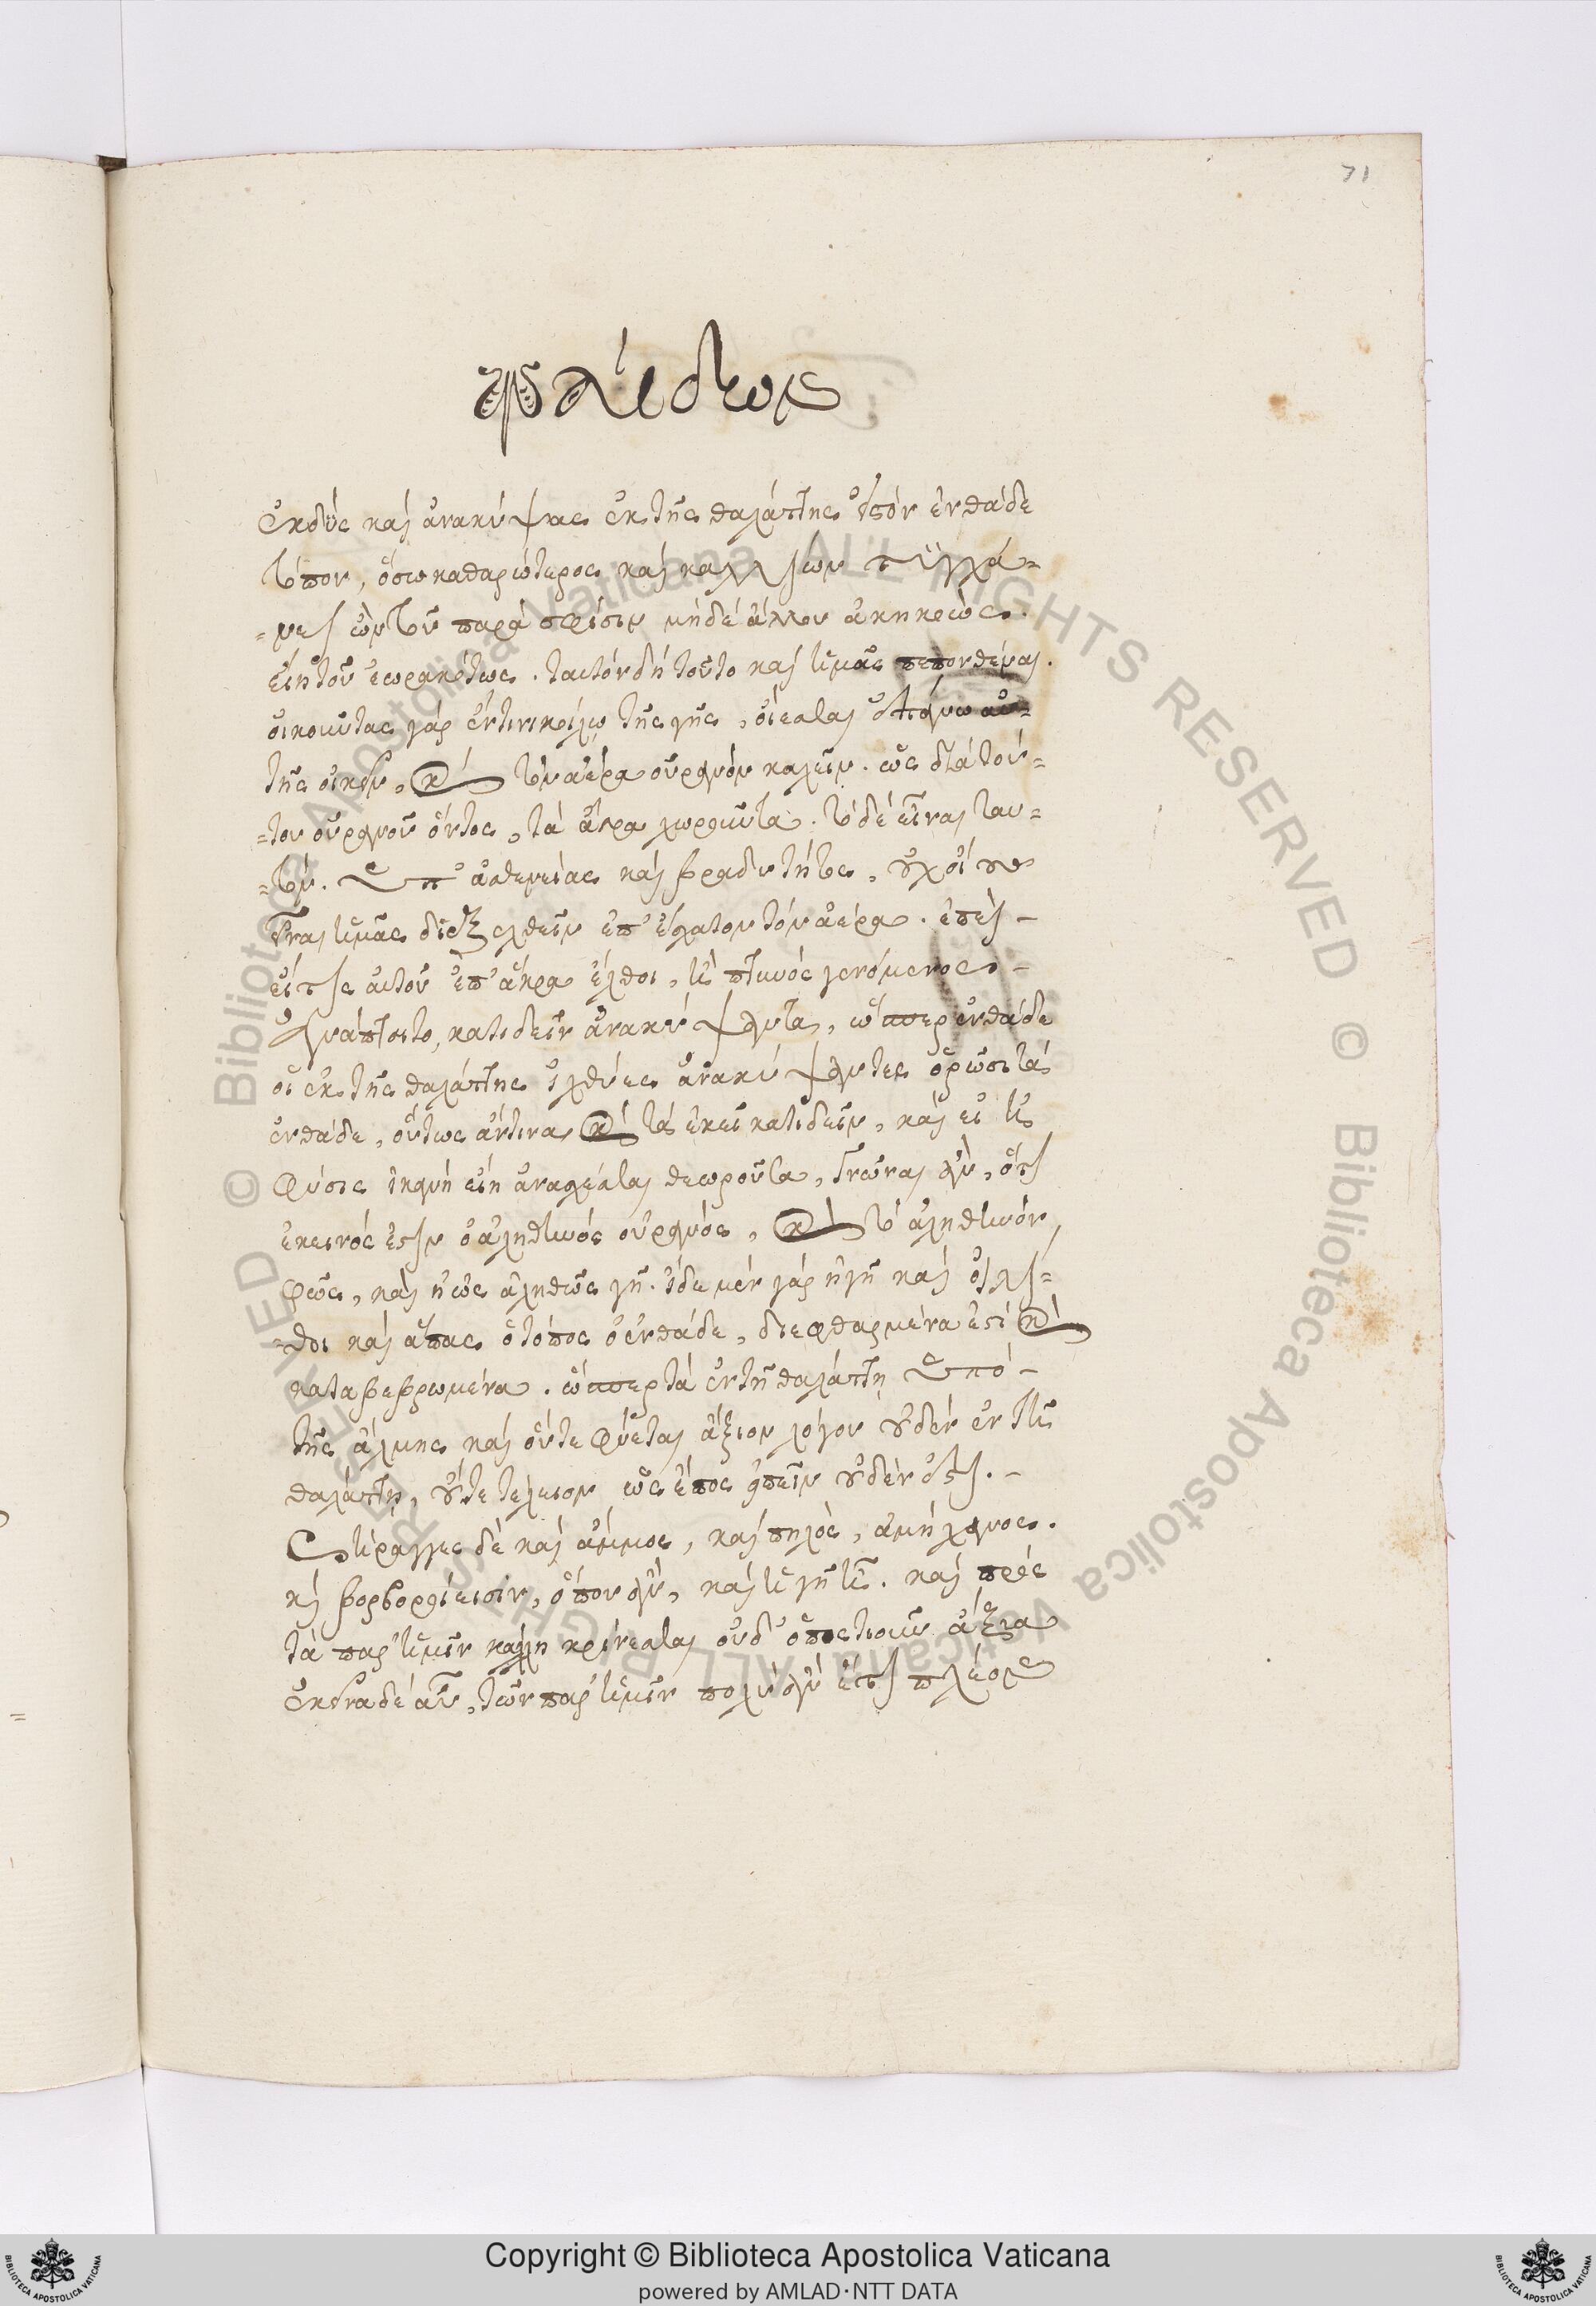 71
φαίδωνος
ἐκδὺς καὶ ἀνακύψας ἐκ τῆς θαλάττης εἰς τὸν ἐνθάδε
τόπον, ὅσω καθαρώτερος καὶ καλλίων τυγχά=
=νει ὢν τοῦ παρὰ σφίσιν μηδὲ ἄλλου ἀκηκοὼς.
εἴη τοῦ ἑωρακότως. ταυτὸν δὴ τοῦτο καὶ ἡμᾶς πεπονθέναι.
οἰκοῦντας γὰρ ἔν τινι κοίλῳ τῆς γῆς, οἴεσθαι ἐπάνω αὐ=
τῆς οἰκεῖν, καὶ τὸν ἀέρα οὐρανὸν καλεῖν. ὡς διὰ τού=
=του οὐρανοῦ ὄντος, τὰ ἄστρα χωροῦντα. τὸ δὲ εἶναι ταυ=
=τόν. ὑπ' ἀσθενείας καὶ βραδυτῆτος, οὐχ οἵους
εἶναι ἡμᾶς διεξελθεῖν ἐπ' ἔσχατον τὸν ἀέρα. ἐπεὶ -
εἴ τις αὐτοῦ ἐπ' ἄκρα ἔλθοι, ἢ πτηνὸς γενόμενος. -
ἀνάπτοιτο, κατιδεῖν ἀνακύψαντα, ὥσπερ ἐνθάδε
οἱ ἐκ τῆς θαλάττης ἰχθύες ἀνακύψαντες ὁρῶσι τὰ
ἐνθάδε, οὕτως ἄν τινα καὶ τὰ ἐκεῖ κατιδεῖν, καὶ εἰ ἡ
φύσις ἱκανὴ εἴη ἀνασχέσθαι θεωροῦντα, γνῶναι ἂν, ὅτι
ἐκεινός ἐστιν ὁ ἀληθινὸς οὐρανός, καὶ τὸ ἀληθινὸν
φῶς, καὶ ἡ ὡς ἀληθῶς γῆ. ἥδε μὲν γὰρ ἡ γῆ καὶ οἱ λί=
=θοι καὶ ἅπας ὁ τόπος ὁ ἐνθάδε, διεφθαρμένα ἐστὶ καὶ
καταβεβρωμένα. ὥσπερ τὰ ἐν τῇ θαλάττῃ ὑπὸ -
τῆς ἅλμης καὶ οὔτε φύεται ἄξιον λόγου οὐδὲν ἐν τῇ
θαλάττῃ, οὔτε τέλειον ὡς ἔπος εἰπεῖν οὐδέν ἐστι. -
Σήραγγες δὲ καὶ ἄμμος, καὶ πηλὸς, ἀμήχανος.
κὶ βορβοροί εἰσιν, ὅπου ἂν, καὶ ἡ γῆ ᾖ. καὶ πρὸς
τὰ παρ' ἡμῖν κάλλη κρίνεσθαι οὐδ' ὁπωστιοῦν ἄξια
ἐκεῖνα δὲ αὖ, τῶν παρ' ἡμῖν πολὺ ἂν ἔτι πλέον
Copyright © Biblioteca Apostolica Vaticana
powered by AMLAD·NTT DATA